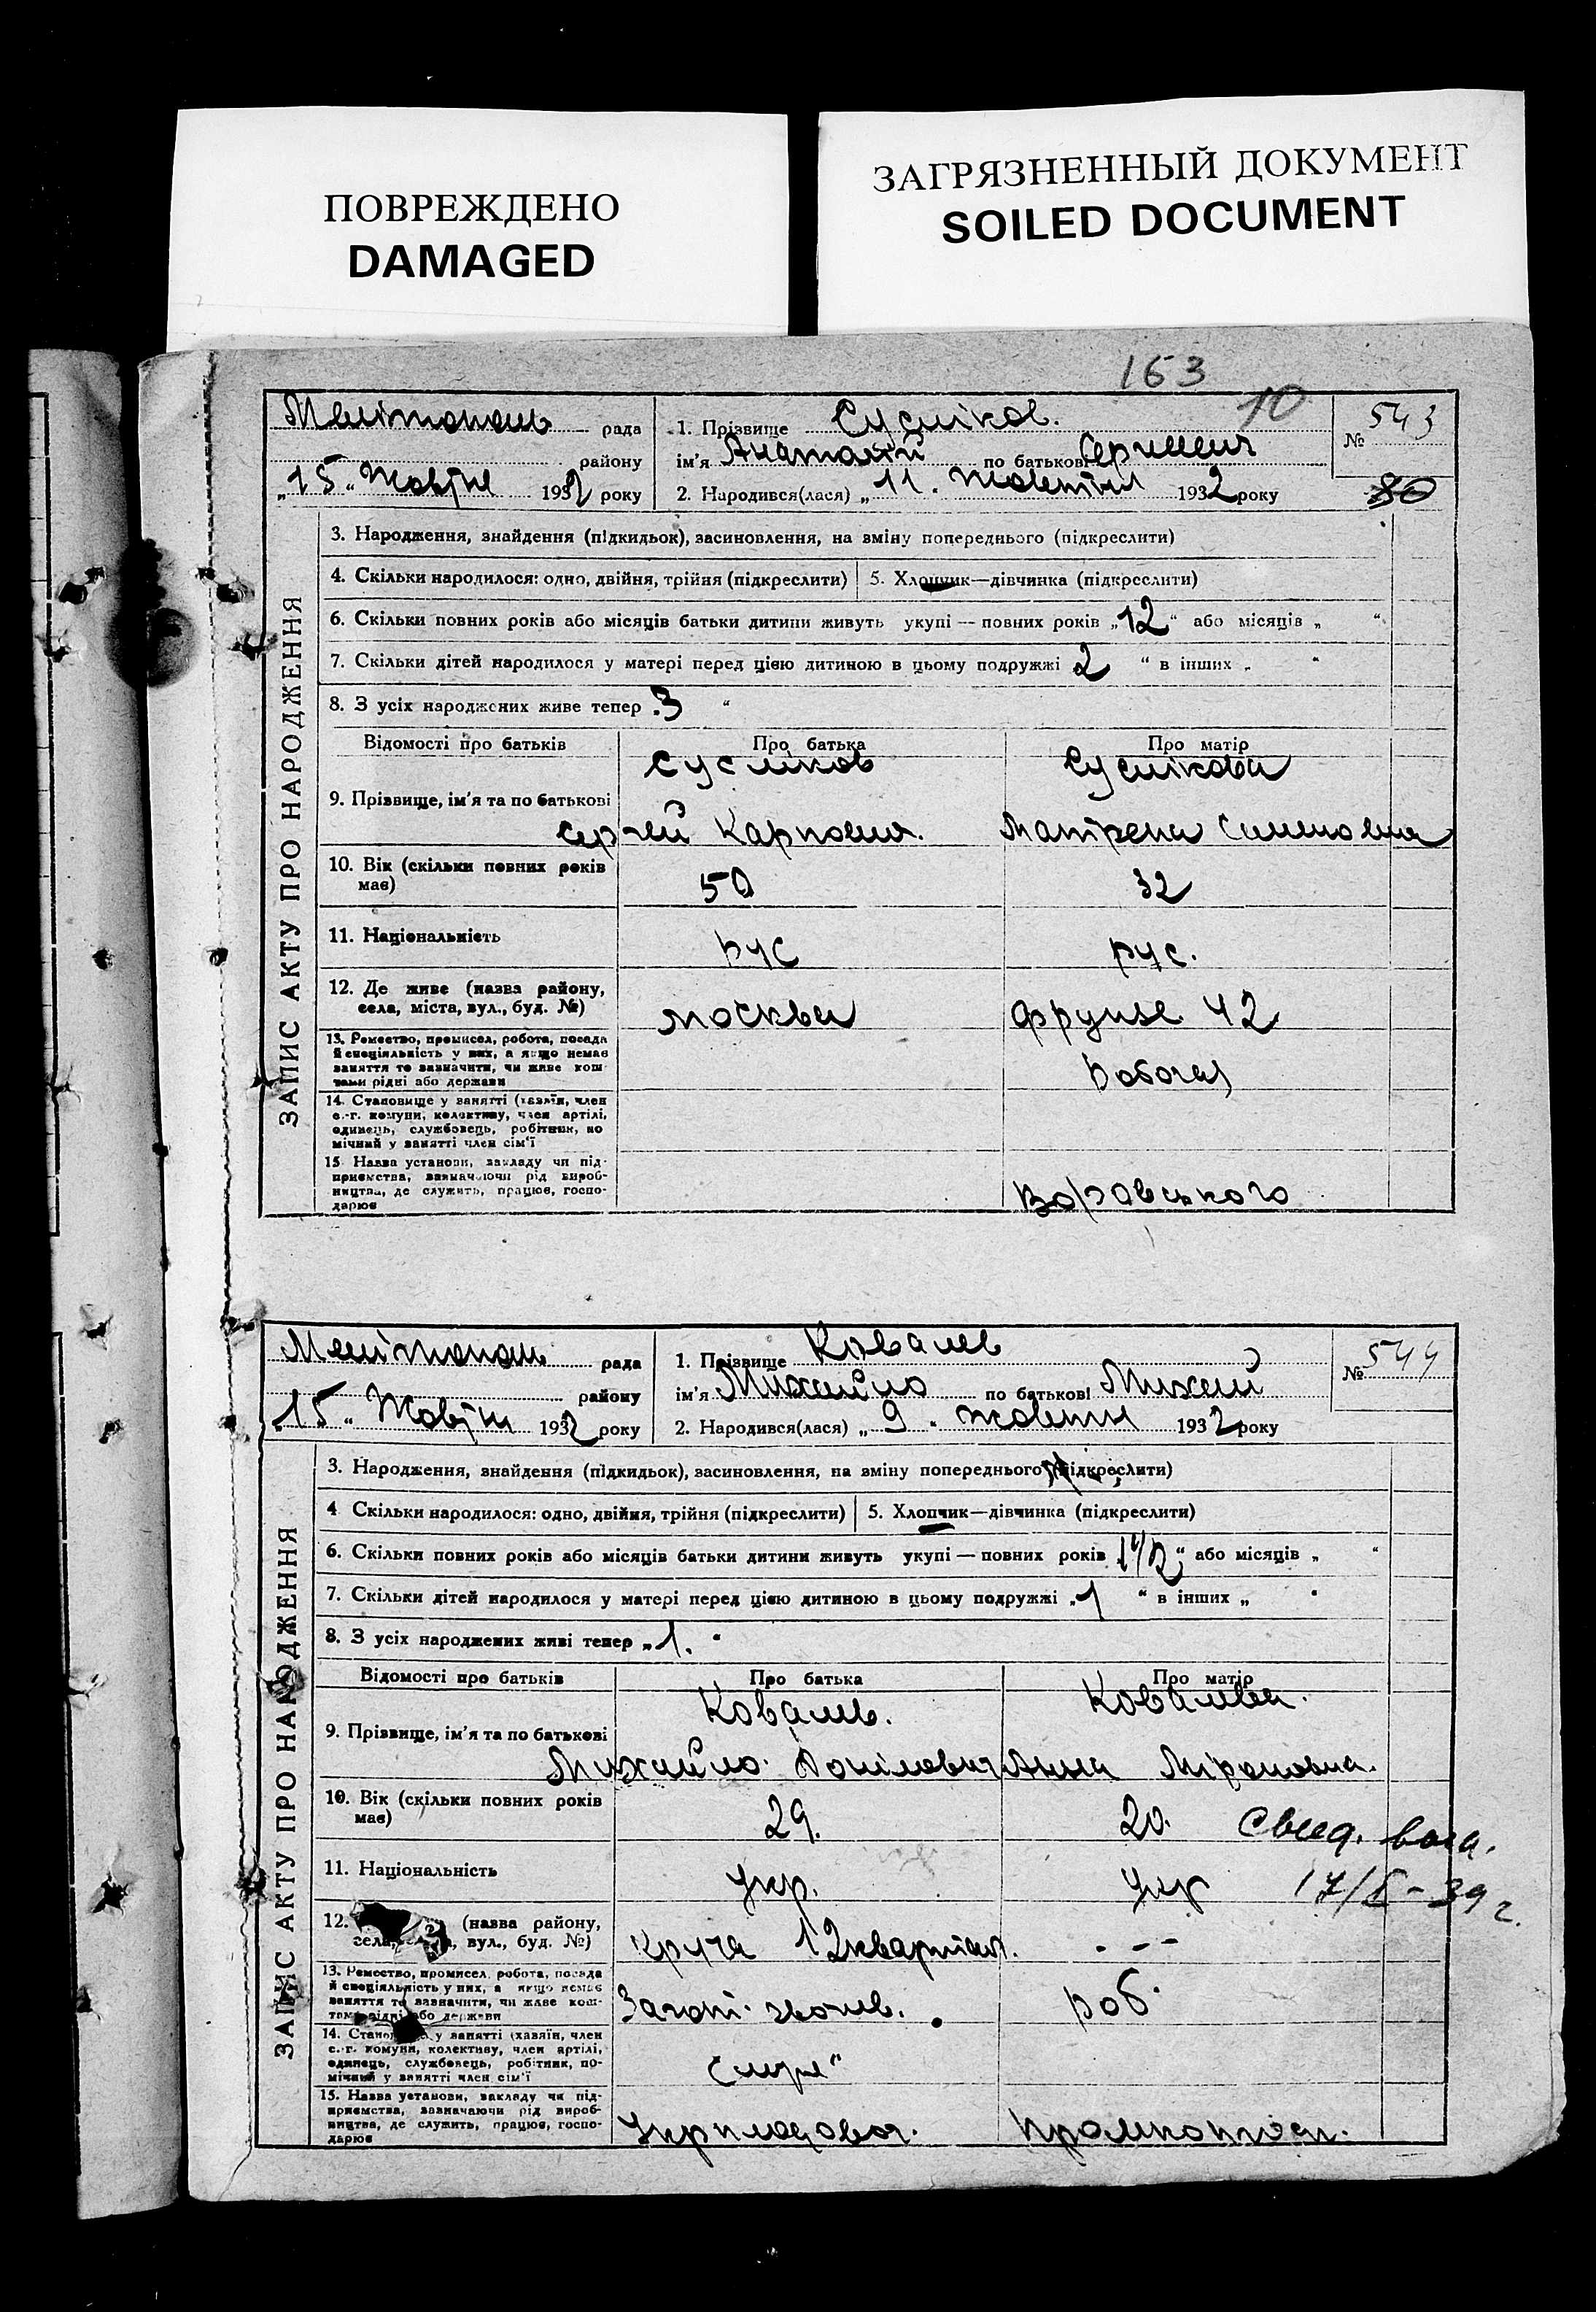 ПОВРЕЖДЕНО
DAMAGED
ЗАГРЯЗНЕННЫЙ ДОКУМЕНТ
SOILED DOCUMENT
163
10
ЗАПИС АКТУ ПРО НАРОДЖЕННЯ
Мелітополь рада
району
„15" Жовтня 1932 року
1. Прізвище Сусліков.
ім'я Анатолій по батькові Сергиевич
2. Народився(лася) „11" жовтня 1932 року
№ 543
80
3. Народження, знайдення (підкидьок), засиновлення, на зміну попереднього (підкреслити)
4. Скільки народилося: одно, двійня, трійня (підкреслити) 5. Хлопчик—дівчинка (підкреслити)
6. Скільки повних років або місяців батьки дитини живуть укупі — повних років „12" або місяців „ "
7. Скільки дітей народилося у матері перед цією дитиною в цьому подружжі 2 " в інших „ "
8. З усіх народжених живе тепер 3 "
Відомості про батьків Про батька Про матір
9. Прізвище, ім'я та по батькові Сусліков Суслікова
Сергей Карпович. Матрена Семеновна
10. Вік (скільки повних років має) 50 32
11. Національність рус рус.
12. Де живе (назва району, села, міста, вул., буд. №) Москва Фрунзе 42
13. Ремество, промисел, робота, посада й спеціяльність у них, а якщо немає заняття то зазначити, чи живе коштами рідні або держави Робочая
14. Становище у занятті (хазяїн, член с.-г. комуни, колективу, член артілі, одинець, службовець, робітник, помічний у занятті член сім'ї
15. Назва установи, закладу чи підприємства, зазначаючи рід виробництва, де служить, працює, господарює Воровського
ЗАПИС АКТУ ПРО НАРОДЖЕННЯ
Мелітополь рада
району
„15" Жовтня 1932 року
1. Прізвище Коваль
ім'я Михайло по батькові Михай
2. Народився(лася) „9" жовтня 1932 року
№ 544
3. Народження, знайдення (підкидьок), засиновлення, на зміну попереднього (підкреслити)
4 Скільки народилося: одно, двійня, трійня (підкреслити) 5. Хлопчик—дівчинка (підкреслити)
6. Скільки повних років або місяців батьки дитини живуть укупі — повних років 1 1/2 " або місяців „ "
7. Скільки дітей народилося у матері перед цією дитиною в цьому подружжі „1 " в інших „ "
8. З усіх народжених живі тепер „1. "
Відомості про батьків Про батька Про матір
9. Прізвище, ім'я та по батькові Коваль. Ковальва.
Михайло Данілович Анна Міроновна.
10. Вік (скільки повних років має) 29. 20.
Свид. выд.
11. Національність Укр. Укр
17/X-39 г.
12. (назва району, села, вул., буд. №) Круча 12 квартал. - - -
13. Ремество, промисел, робота, посада й спеціяльність у них, а якщо немає заняття то зазначити, чи живе коштами рідні або держави роб.
14. Становище у занятті (хазяїн, член с.-г. комуни, колективу, член артілі, одинець, службовець, робітник, помічний у занятті член сім'ї Служ"
15. Назва установи, закладу чи підприємства, зазначаючи рід виробництва, де служить, працює, господарює Укрплодовоч.